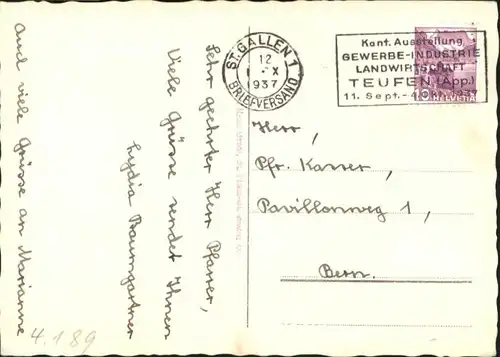 Sehr geehrter Herr Pfarrer,
Viele Grüsse sendet Ihnen
Lydia Baumgartner
und viele Grüsse an Marianne
4.189
ST. GALLEN 1
12
1. X
1937
BRIEFVERSAND
Kant. Ausstellung
GEWERBE-INDUSTRIE
LANDWIRTSCHAFT
TEUFEN (App.)
11. Sept.-4. Okt. 1937
HELVETIA
Herr,
Pfr. Karrer,
Pavillonweg 1,
Bern.